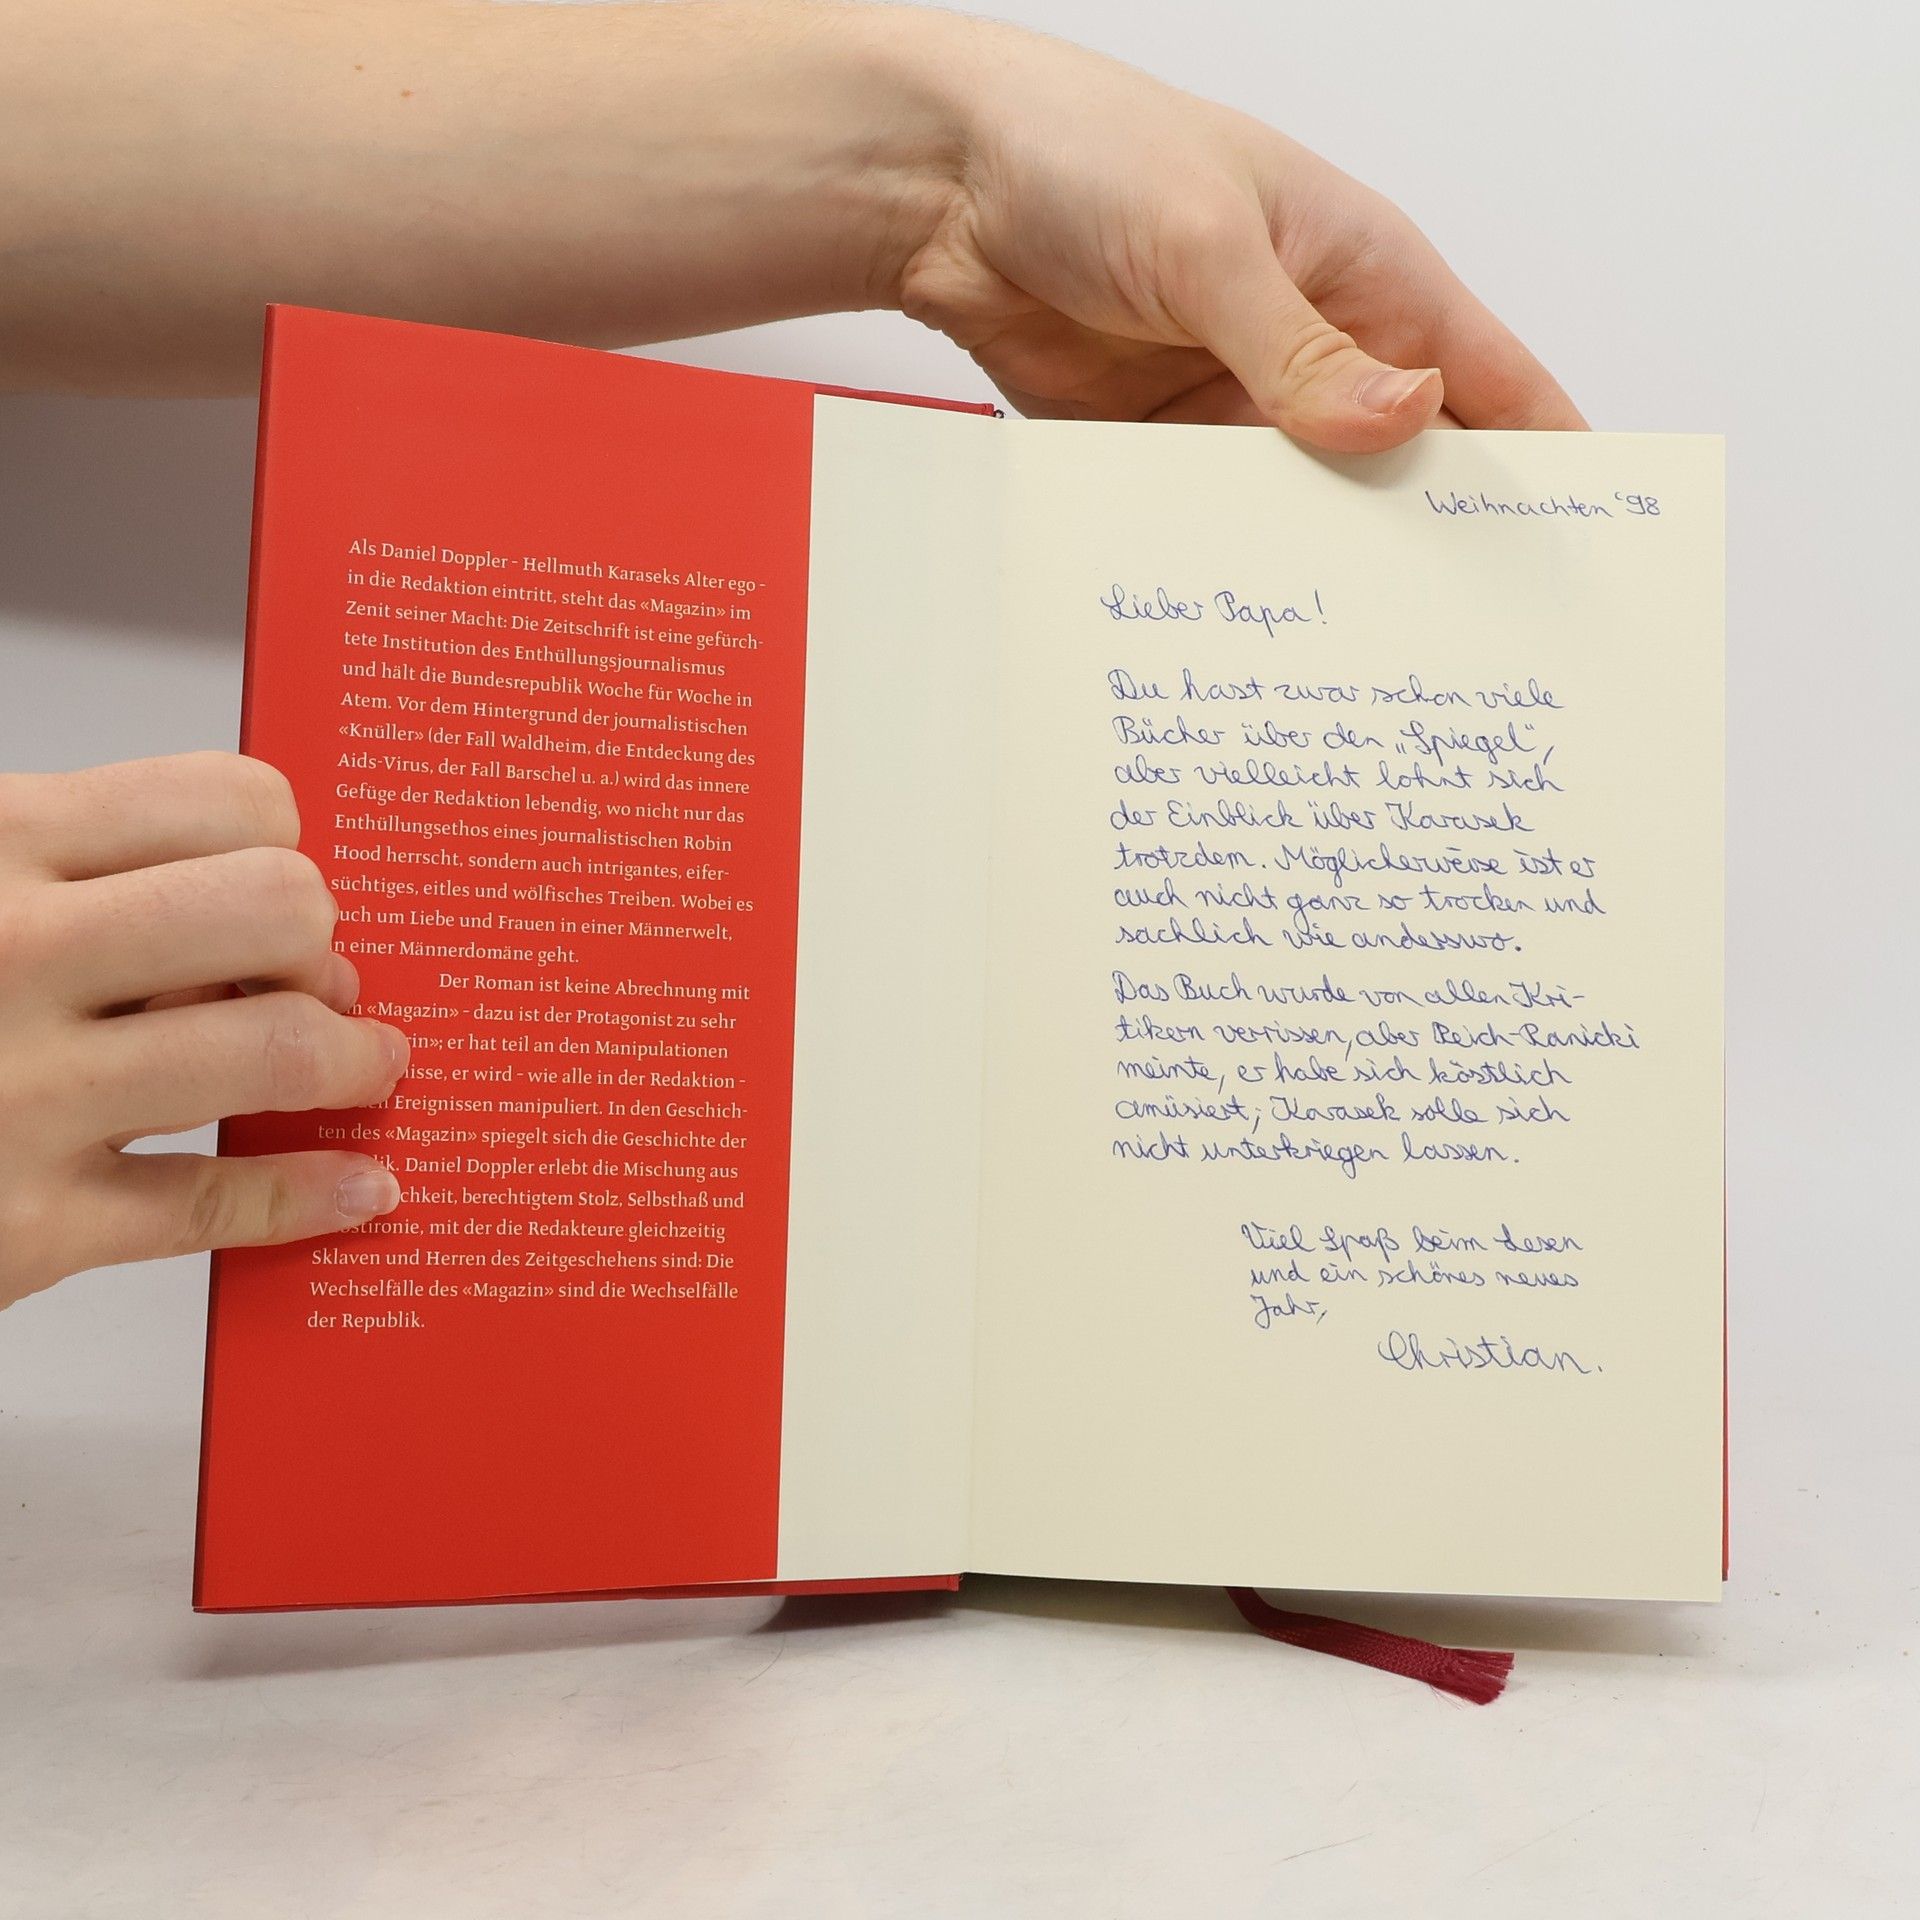 Als Daniel Doppler – Hellmuth Karaseks Alter ego –
in die Redaktion eintritt, steht das «Magazin» im
Zenit seiner Macht: Die Zeitschrift ist eine gefürch-
tete Institution des Enthüllungsjournalismus
und hält die Bundesrepublik Woche für Woche in
Atem. Vor dem Hintergrund der journalistischen
«Knüller» (der Fall Waldheim, die Entdeckung des
Aids-Virus, der Fall Barschel u. a.) wird das innere
Gefüge der Redaktion lebendig, wo nicht nur das
Enthüllungsethos eines journalistischen Robin
Hood herrscht, sondern auch intrigantes, eifer-
süchtiges, eitles und wölfisches Treiben. Wobei es
um Liebe und Frauen in einer Männerwelt,
einer Männerdomäne geht.
Der Roman ist keine Abrechnung mit
«Magazin» – dazu ist der Protagonist zu sehr
er hat teil an den Manipulationen
er wird – wie alle in der Redaktion –
Ereignissen manipuliert. In den Geschich-
ten des «Magazin» spiegelt sich die Geschichte der
Daniel Doppler erlebt die Mischung aus
berechtigtem Stolz, Selbsthaß und
mit der die Redakteure gleichzeitig
Sklaven und Herren des Zeitgeschehens sind: Die
Wechselfälle des «Magazin» sind die Wechselfälle
der Republik.
Weihnachten '98
Lieber Papa!
Du hast zwar schon viele
Bücher über den „Spiegel“,
aber vielleicht lohnt sich
der Einblick über Karasek
trotzdem. Möglicherweise ist er
auch nicht ganz so trocken und
sachlich wie anderswo.
Das Buch wurde von allen Kri-
tikern verrissen, aber Reich-Ranicki
meinte, er habe sich köstlich
amüsiert; Karasek solle sich
nicht unterkriegen lassen.
Viel Spaß beim Lesen
und ein schönes neues
Jahr,
Christian.